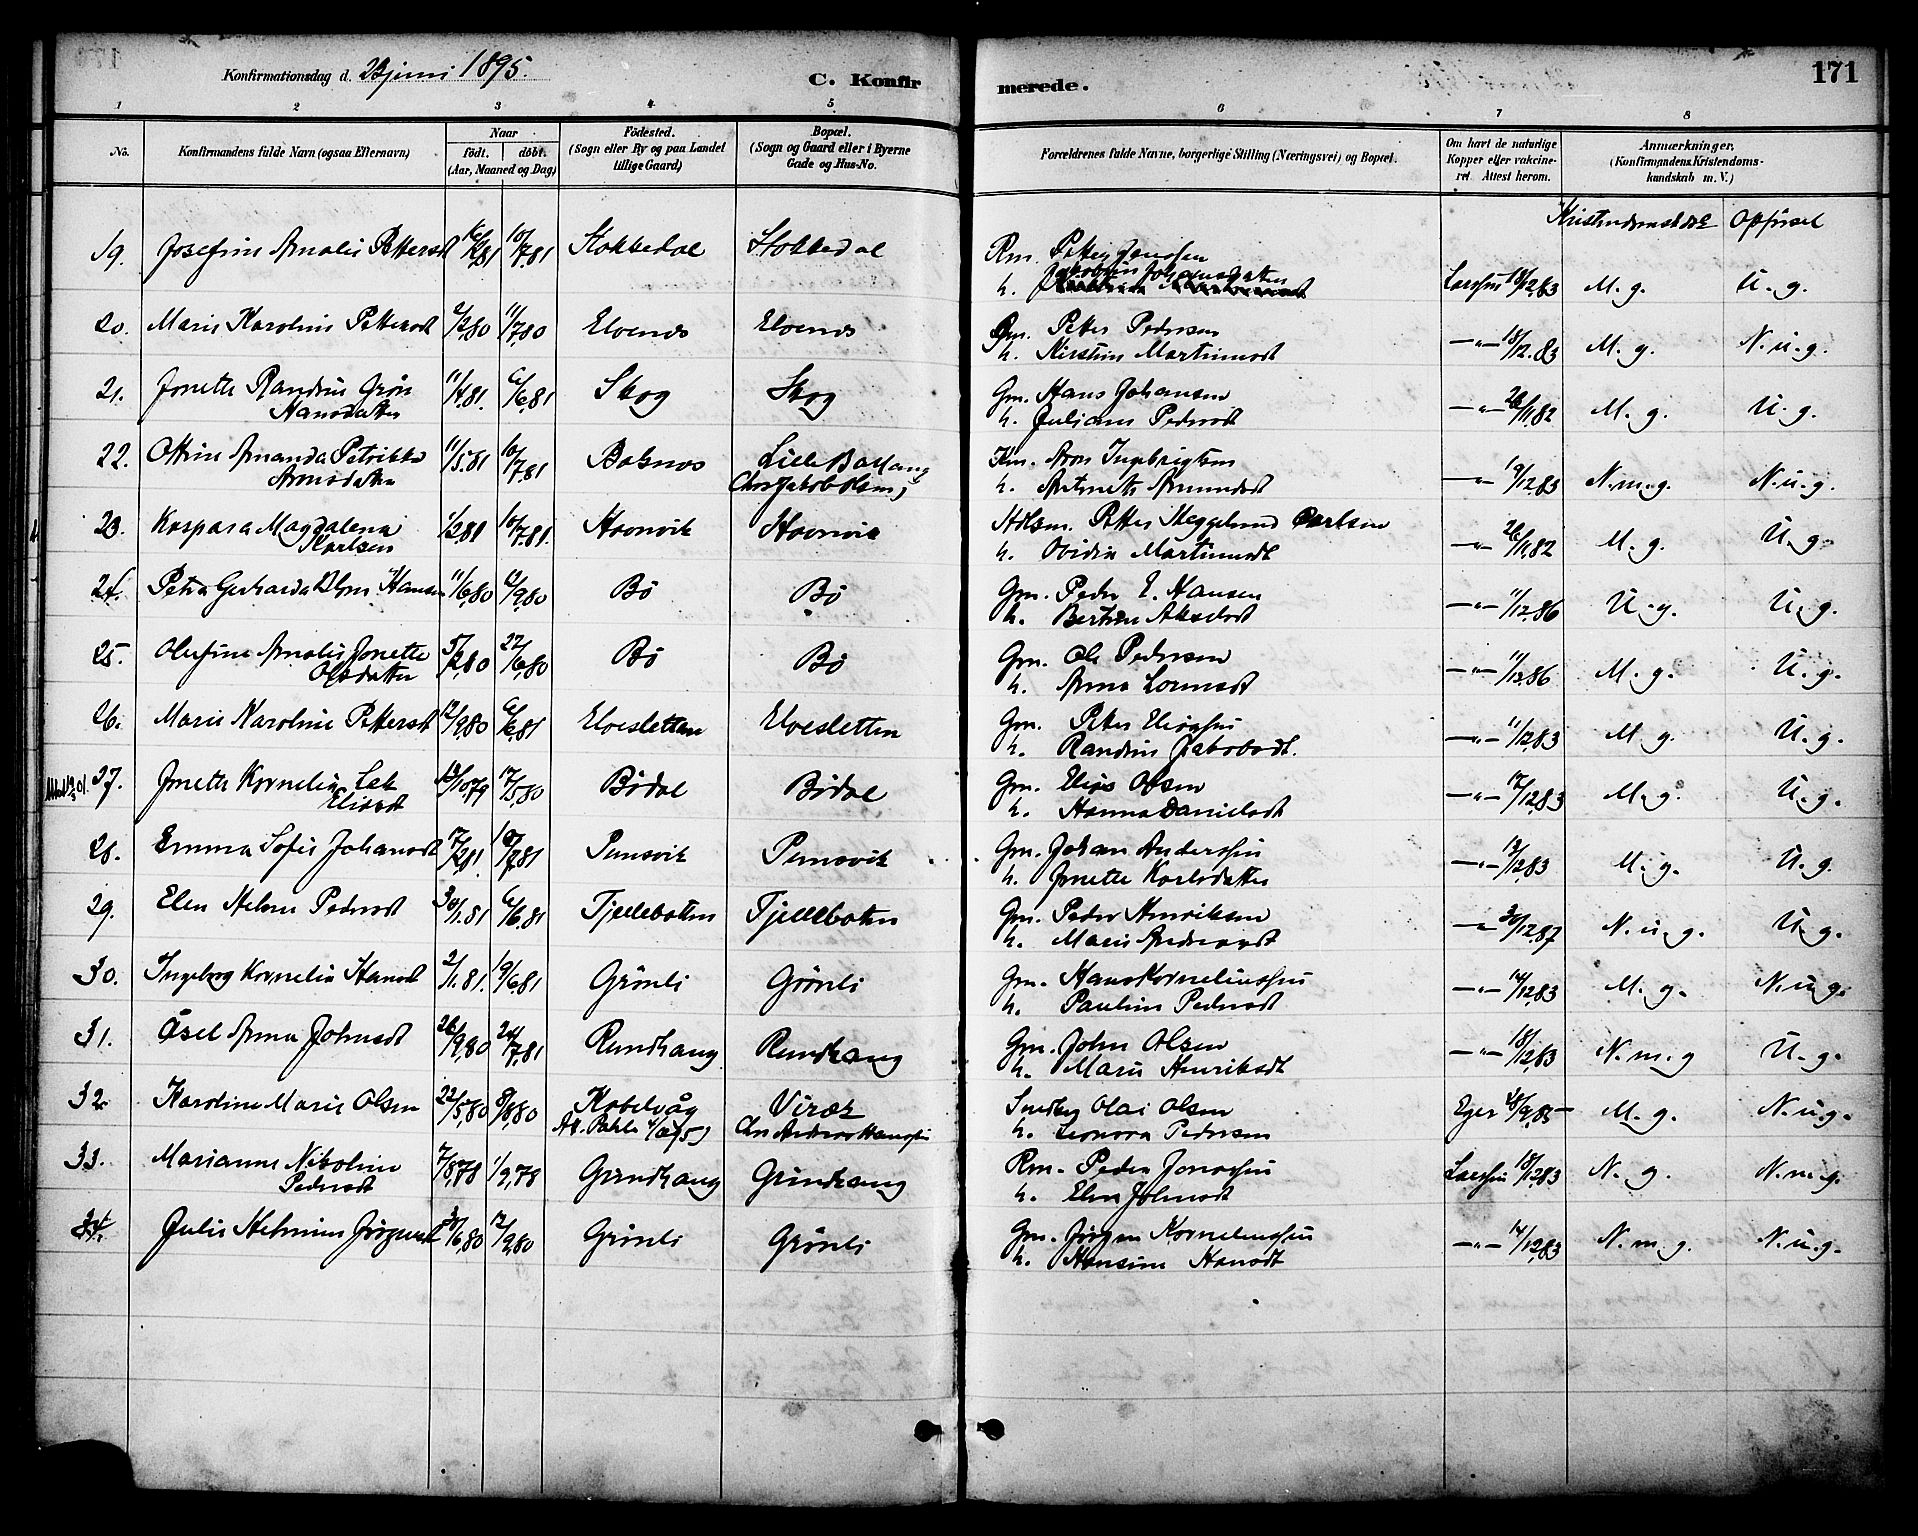 Konfirmationsdag d. 23 juni 1895.
C. Konfir
merede.
171
1 2 3 4 5 6 7 8
No.
Konfirmandens fulde Navn (ogsaa Efternavn)
Naar
födt. döbt.
(Aar, Maaned og Dag)
Födested.
(Sogn eller By og paa Landet
tillige Gaard)
Bopæl.
(Sogn og Gaard eller i Byerne
Gade og Hus-No.
Forældrenes fulde Navne, borgerlige Stilling (Næringsvei) og Bopæl.
Om havt de naturlige
Kopper eller vakcine-
ret. Attest herom.
Anmærkninger.
(Konfirmandens Kristendoms-
kundskab m. V.)
Opförsel
19. Josefine Amalie Petters 10/7.81 Stokkedal Stokkedal Rm. Petter Jenssen
h. Larssen 18/12.83 M. g. U. g.
20. Marie Karoline Pettersdt 2/2.80 11/7.80 Elvenes Elvenes Gm. Petter Pedersen
h. Kirstine Martinusdt —"— 18/12.83 M. g. N. u. g.
21. Jonette Randine Grön 11/4.81. 6/6.81 Skog Skog Gm. Hans Johansen
Hansdatter h. Juliane Pedersdt —"— 26/11.82 M. g. U. g.
22. Otilie Amanda Petrikke 11/5.81 10/7.81 Balsnes Lille Ballang Km. Aron Ingebrigtsen
Aronsdatter h. —"— 19/12.83 N. m. g. N. u. g.
23. Kaspara Magdalena 1/2.81 10/7.81. Stovnvik Stovnvik Petter Carlsen
Karlsen h. Ovidia Martinusdt —"— 26/11.82 M. g. U. g.
24. Petra Gerharda Hansen 11/6.80 12/9.80 Bö Bö Gm. Peder E. Hansen
h. Bertine Akseldt —"— 11/12.86 U. g. U. g.
25. Olufine Amalie Jonette 5/2.80 27/6.80 Bö Bö Gm. Ole Pedersen
Olsdatter h. Anna —"— 11/12.86 M. g. U. g.
26. Marie Karoline Pettersdt 12/9.80 6/6.81 Elvesletten Elvesletten Gm. Petter Eliassen
h. Randine Jakobsdt. —"— 11/12.83 M. g. U. g.
27. Jonette Kornelia 17/5.80 Bödal Bödal Gm. Elias Olsen
Eliasdt h. Hanna Danielsdt —"— 17/12.83 M. g. U. g.
28. Emma Sofie Johansdt 17/2.81. 10/7.81 Pumsvik Pumsvik Gm. Johan Anderssen
h. Jonette Karlsdatter —"— 12/12.83 M. g. U. g.
29. Elen Helene Pedersdt 30/1.81 6/6.81 Fjellebotten Fjellebotten Gm. Peder Henriksen
h. Marie Andreasdt —"— 30/12.87 N. u. g. U. g.
30. Ingeborg Kornelia Hansdt 2/1.81. 19/6.81 Grönli Grönli Gm. Hans Korneliussen
h. Pauline Pedersdt —"— 14/12.83 M. g. N. u. g.
31. Åsel Anna Johnsdt 26/9.80 24/7.81 Rundhaug Rundhaug Gm. John Olsen
h. Marie Henriksdt —"— 18/12.83 N. m. g U. g.
32. Karoline Marie Olsen 22/5.80 8/8.80 Kabelvåg Virak Olai Olsen
h. Leonora Pedersen Eger 28/9.85 M. g. N. u. g.
33. Marianne Nikoline 7/8.78 1/9.78 Grundhaug Grundhaug Rm. Peder Jonassen
Pedersdt h. Elen Johnsdt Larssen 18/12.83 N. g. N. m. g.
34. Julie Helmine Jörgensdt 30/6.80 12/9.80 Grönli Grönli Gm. Jörgen Korneliussen
h. Hansine Hansdt —"— 14/12.83 N. m. g. N. u. g.